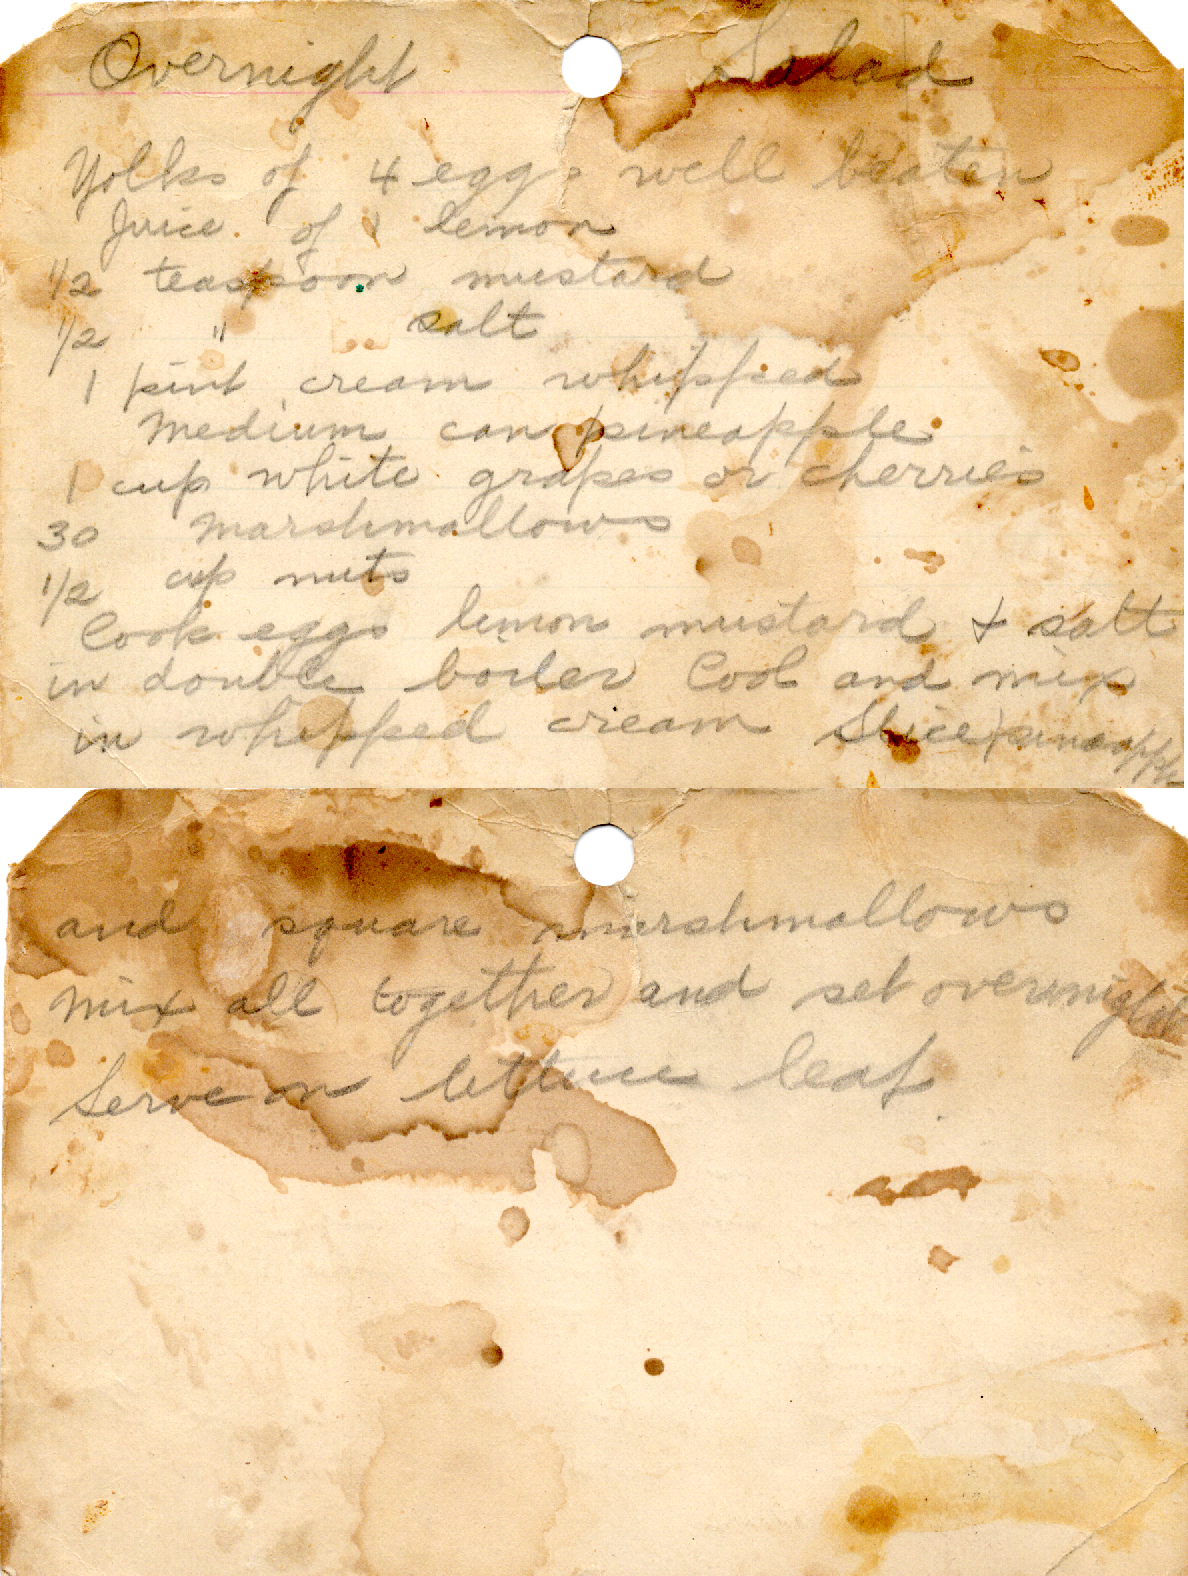 Overnight Salad
Yolks of 4 eggs well beaten
Juice of 1 lemon
1/2 teaspoon mustard
1/2 " salt
1 pint cream whipped
Medium can pineapple
1 cup white grapes or cherries
30 Marshmallows
1/2 cup nuts
Cook eggs lemon mustard & salt
in double boiler Cool and mix
in whipped cream Slice pineapple
and square marshmallows
Mix all together and set overnight
Serve on lettuce leaf